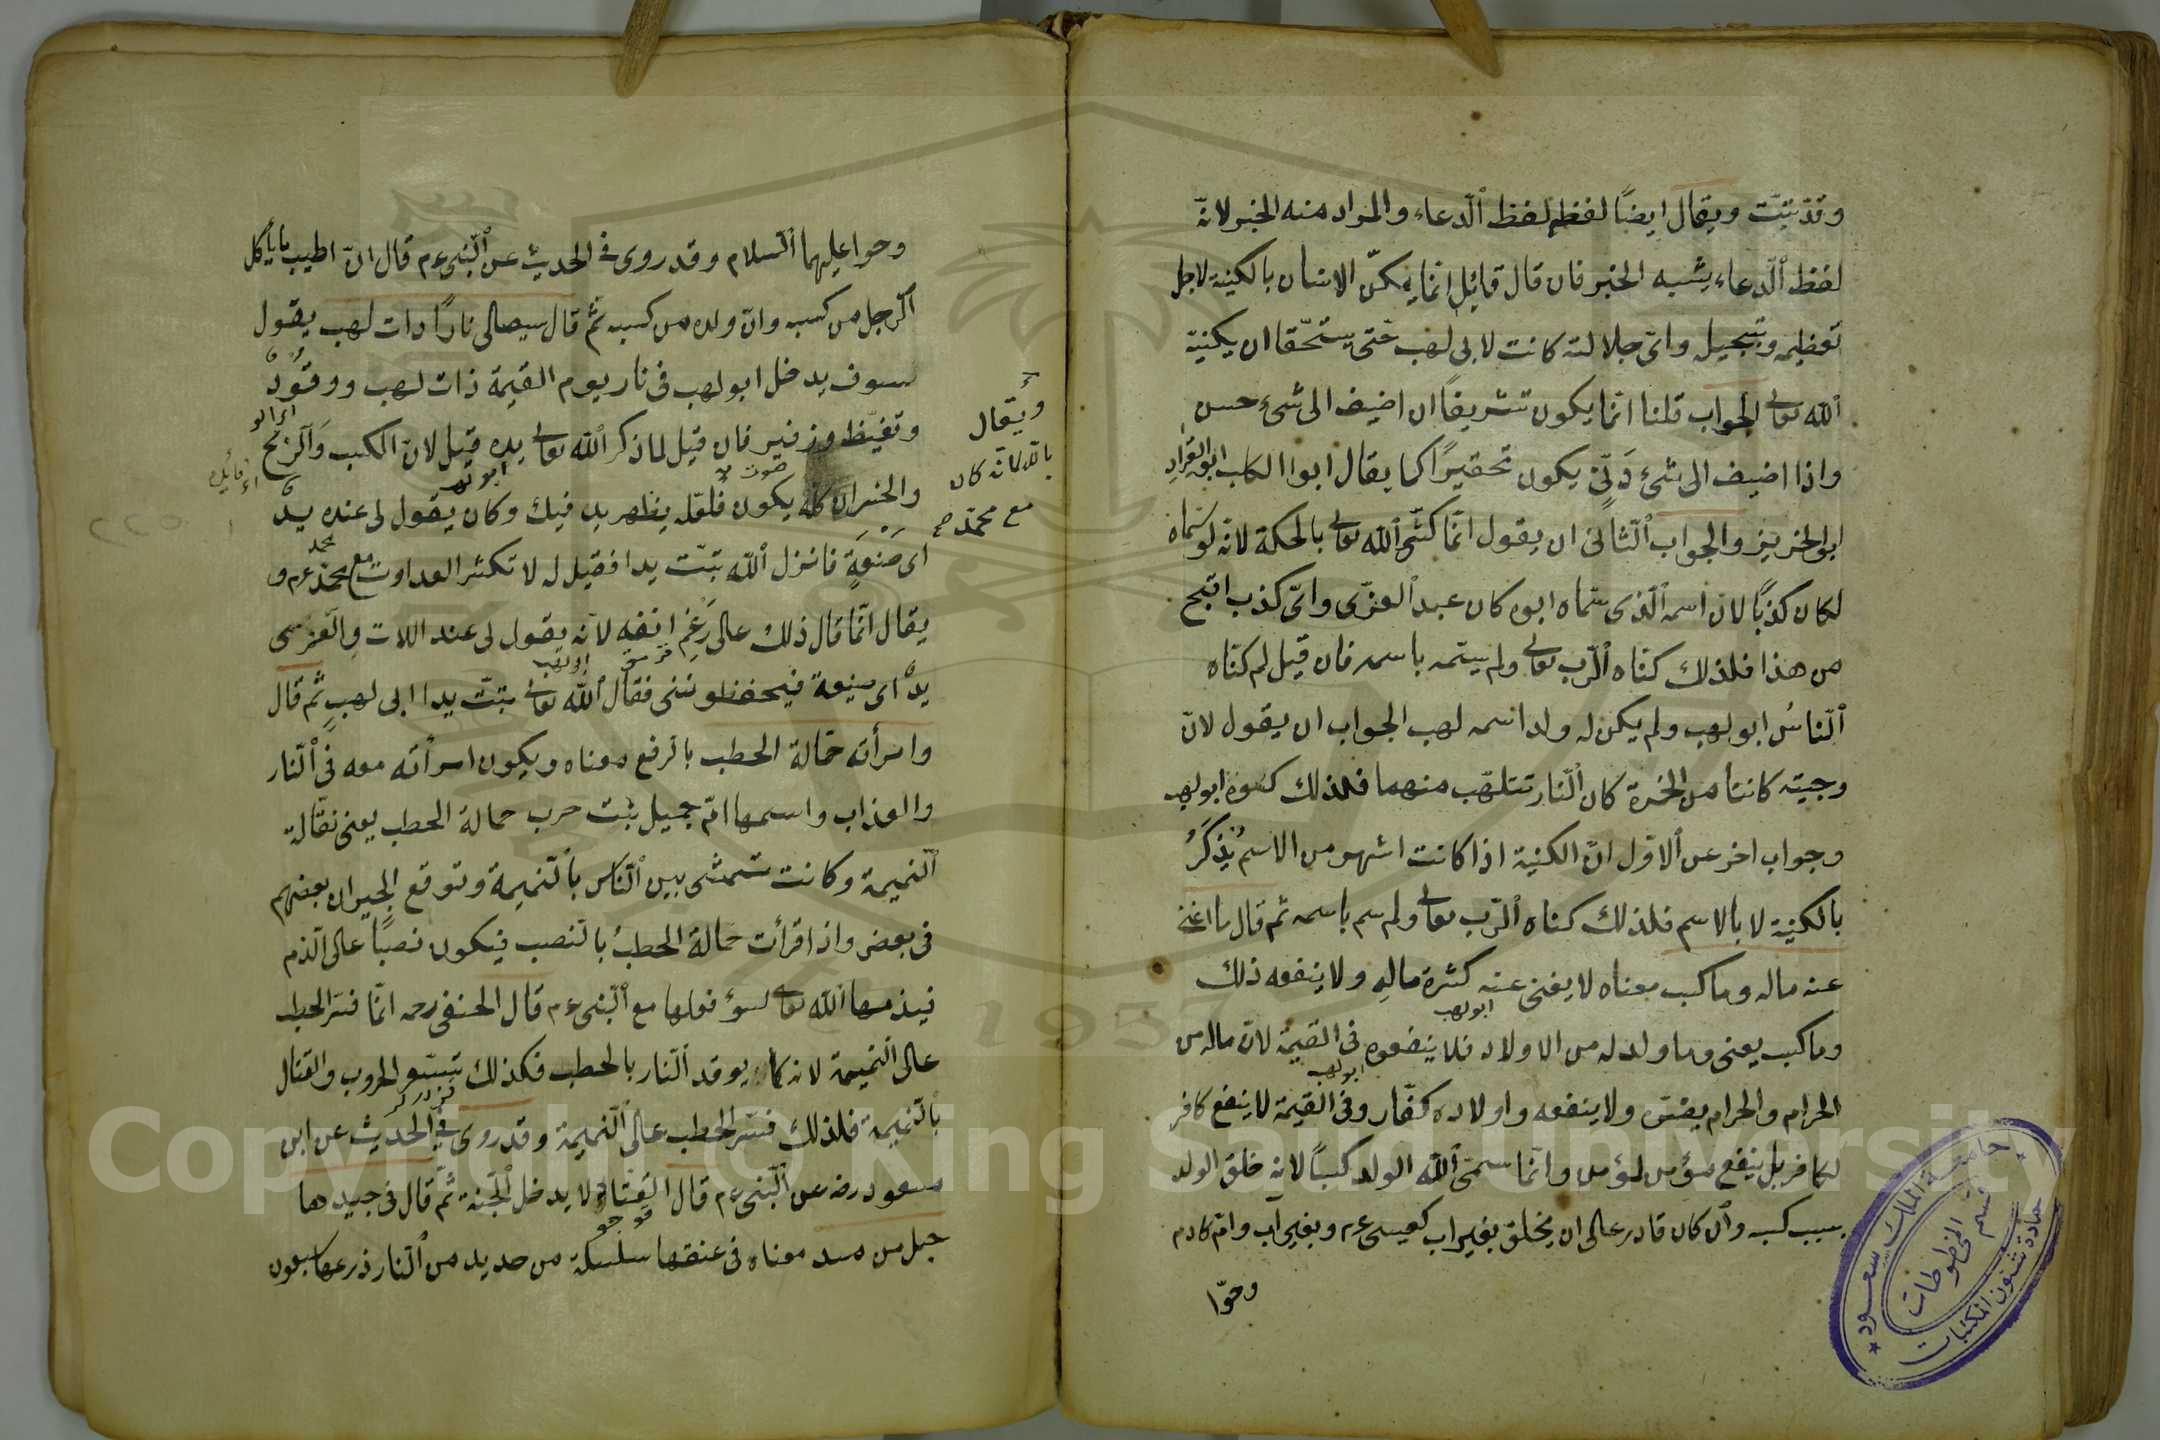 وقد تبّت ويقال ايضًا لفظه لفظ الّدعاء والمراد منه الخبر لانّ
لفظ الّدعاء يشبه الخبر فان قال قائل انّما يكنّى الانسان بالكنية لاجل
تعظيمه وتبجيله واىّ جلالته كانت لابى لهب حتى يستحّقا ان يكنيه
الله تعالى الجواب قلنا انّما يكون تشريفاً ان اضيف الى شئ حسن
واذا اضيف الى شئ دَنّىٍ يكون تحقيرًا كما يقال ابوا الكلاب ابو القراد
ابو الخنزير والجواب الّثانى ان يقول انّما كنّى الله تعالى بالحكمة لانه لو سماه
لكان كذبًا لانّ اسمه الّذى سمّاه ابوه كان عبد العزّى واىّ كذب اقبح
من هذا فلذلك كنّاه الرّب تعالى ولم يسمّه باسمه فان قيل لم كنّاه
الّناسُ ابو لهب ولم يكن له ولد اسمه لهب الجواب ان يقول لانّ
وجنيته كانتا من الخمرة كان الّنار تتلهّب منهما فلذلك كنوه ابو لهب
وجواب اخر عن الاوّل انّ الكنية اذا كانت اشهر من الاسم يُذكَرُ
بالكنية لا بالاسم فلذلك كناه الرّب تعالى ولم سم باسمه ثم قال ما اغنى
عنه ماله وما كسب معناه لا يغنى عنه كثرة مالِهِ ولا ينفعه ذلك
ابو لهب
وما كسب يعنى وما ولد له من الاولاد فلا ينفعوه فى القيمة لانّ ماله من
ابو لهب
الحرام والحرام يفتّى ولا ينفعه واولاده كفّار وفى القيمة لا ينفع كافر
لكافر بل ينفع مؤمن لمؤمن وانّما سمّى الله الولد كسباً لانه خلق الولد
بسبب كسب وان كان قادر على ان يخلق بغير اب كعيسى عم وبغير اب وام كادم
وحوّا
وحوا عليهما السلام وقد روى فى الحديث عن النّبى عم قال انّ اطيب ما يأكل
الرّجل من كسبه وانّ ولده من كسبه ثمّ قال سيصلى نارًا ذات لهب يقول
سوف يدخل ابو لهب فى نار يوم القيمة ذات لهب ووقُودٌ
وتغيّظ وزفير فان قيل لما ذكر الله تعالى يده قيل لان الكسب والرّبح
والخسران كله يكون فلقّله يظهر يد فيك وكان يقول لى عنده يدٌ
ابو لهب
اى صَنْعَةٍ فانزل الله تبّت يدا فقيل له لا تكثر العداوت مع محمّد عم و
محمد
يقال انّما قال ذلك على رَغمِ انفه لانه يقول لى عند اللات والعزّى
يدٌ اى صنيعة فيحفظوننى فقال الله تعالى تبّت يدا ابى لهبٍ ثم قال
ابو لهب
وامرأته حمّالة الحطب بالرّفع معناه ويكون امرأته معه فى النّار
والعذاب واسمها امّ جميل بنت حرب حمالة الحطب يعنى نقّالة
النّميمة وكانت تمشى بين النّاس بالنّميمة وتوقع الجيران بعضهم
فى بعض واذا قرأت حمالة الحطبُ بالنّصب فيكون نصباً على الّذم
فيذمها الله تعالى لسوؤ فعلها مع النّبى عم قال الحنفى رحمه انّما فسّر الحطب
على النّميمة لانه كما يوقد النّار بالحطب فكذلك تبتّع الحروب والقتال
بالنّميمة فلذلك فسّر الحطب على النّميمة وقد روى فى الحديث عن ابن
مسعود رضه عن النّبى عم قال القتّاة لا يدخل الجنّة ثمّ قال فى جيدها
حبل من مسد معناه فى عنقها سلسلة من حديد من النّار ذرعها سبعون
ويقال
بانّه كان
مع محمّد
جامعة الملك سعود
قسم المخطوطات
عمادة شئون المكتبات
1957
Copyright © King Saud University